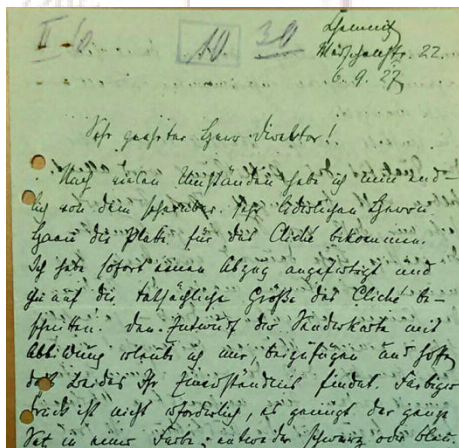 II 6 10. 30 Chemnitz
Würzburgerstr. 22.
6. 9. 27
Sehr geehrter Herr Direktor!
Nach vielen Umständen habe ich nun end-
lich von dem sehr liederlichen Herrn
Haan die Platte für das Cliché bekommen.
Ich habe sofort einen Abzug angefertigt und
genau auf die tatsächliche Größe des Cliché be-
schnitten. Den Entwurf der Sonderkarte mit
Abbildung erlaube ich mir, beizufügen und hoffe
daß beides Ihr Einverständnis findet. Farbiger
Druck ist nicht erforderlich, es genügt der ganze
Satz in einer Farbe: entweder schwarz oder blau